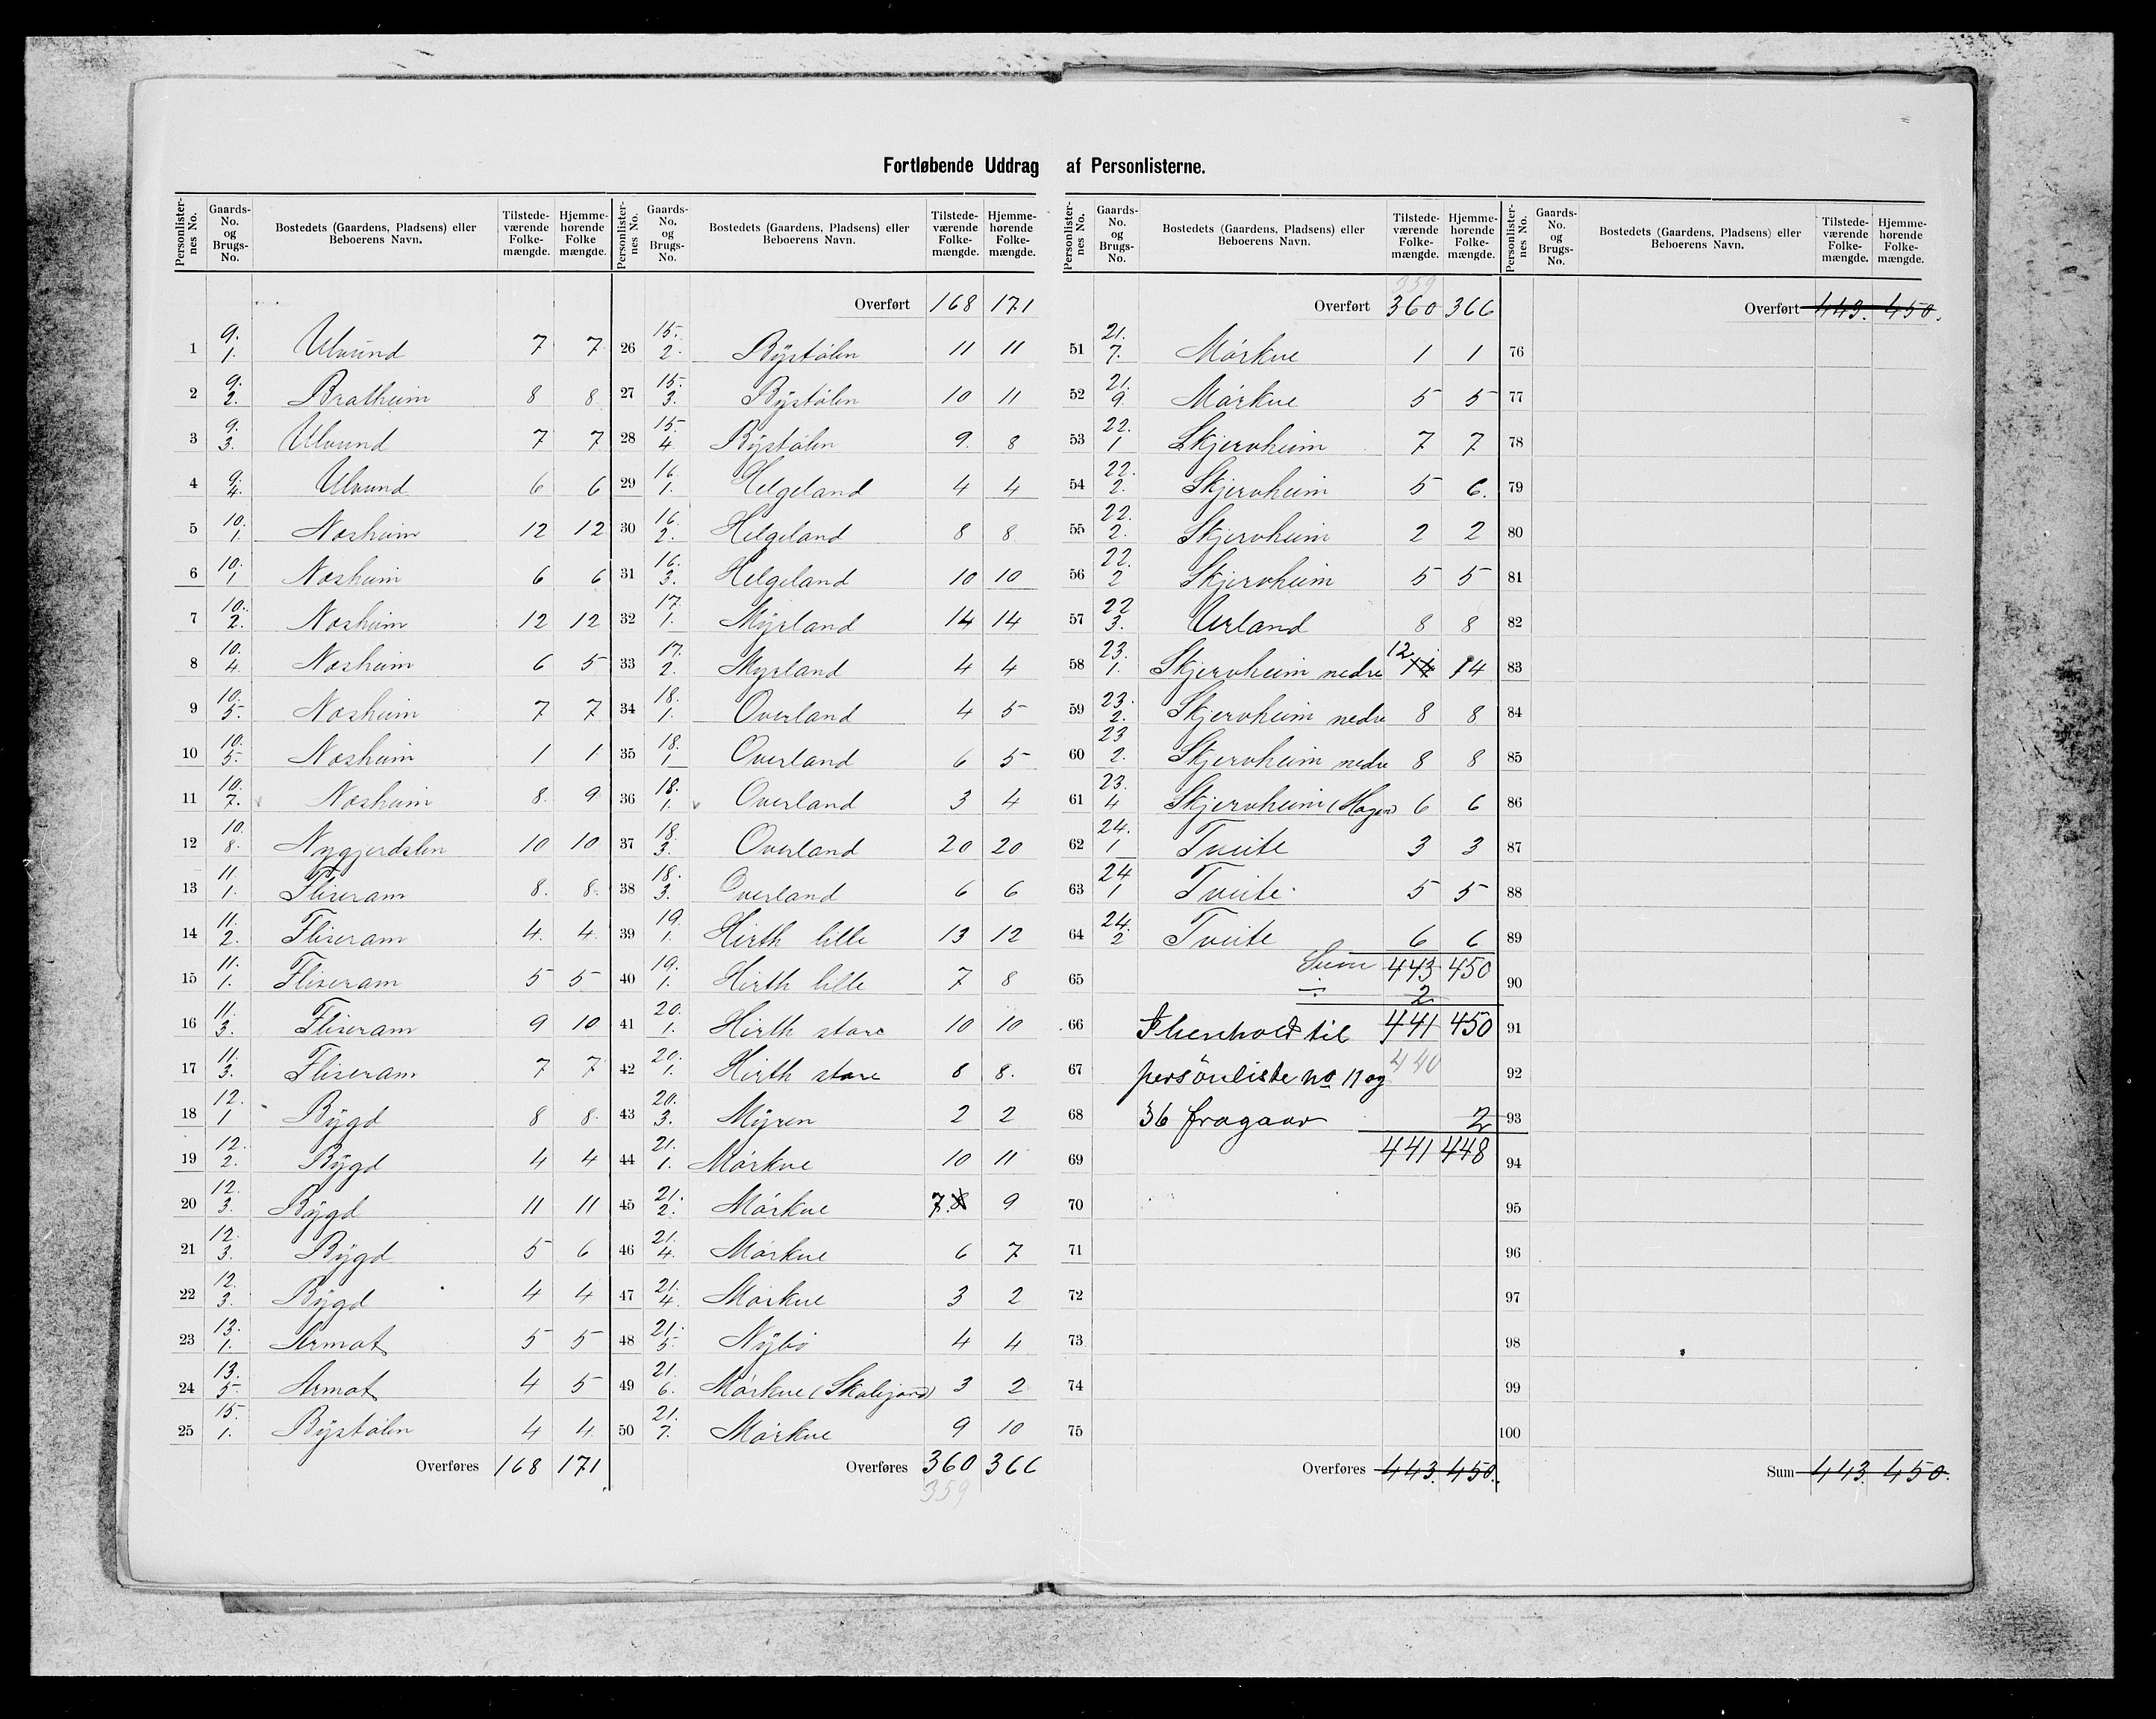 Fortløbende Uddrag af Personlisterne.
Personlisternes No. | Gaards-No. og Brugs-No. | Bostedets (Gaardens, Pladsens) eller Beboerens Navn. | Tilstedeværende Folkemængde. | Hjemmehørende Folkemængde.
1 9. 1. Ulvund 7 7
2 9. 2. Bratheim 8 8
3 9. 3. Ulvund 7 7
4 9. 4. Ulvund 6 6
5 10. 1. Nosheim 12 12
6 10. 1 Nosheim 6 6
7 10. 2. Nosheim 12 12
8 10. 4. Nosheim 6 5
9 10. 5. Nosheim 7 7
10 10. 5. Nosheim 1 1
11 10. 7. Nosheim 8. 9
12 10. 8. Nygjerdslen 10 10
13 11 1. Fliseram 8. 8.
14 11. 2. Fliseram 4. 4.
15 11. 1. Fliseram 5 5
16 11. 3. Fliseram 9 10
17 11. 3. Fliseram 7 7
18 12. 1 Bygd 8 8.
19 12. 2. Bygd 4 4
20 12. 3. Bygd 11 11
21 12. 3. Bygd 5 6
22 12. 3. Bygd 4 4
23 13. 1. Armot 5 5
24 13. 5 Armot 4 5
25 15. 1. Bystølen 4 4
Overføres 168 171
Personlisternes No. | Gaards-No. og Brugs-No. | Bostedets (Gaardens, Pladsens) eller Beboerens Navn. | Tilstedeværende Folkemængde. | Hjemmehørende Folkemængde.
Overført 168 171
26 15. 2. Bystølen 11 11
27 15. 3. Bystølen 10 11
28 15. 4. Bystølen 9. 8
29 16. 1. Helgeland 4 4
30 16. 2. Helgeland 8 8
31 16. 3. Helgeland 10 10
32 17. 1. Myrland 14 14
33 17. 2. Myrland 4 4
34 18. 1. Overland 4 5
35 18. 1 Overland 6 5
36 18. 1. Overland 3 4
37 18. 3. Overland 20 20
38 18. 3. Overland 6 6
39 19. 1. Hirth lille 13 12
40 19. 1. Hirth lille 7 8
41 20. 1. Hirth store 10 10
42 20. 1. Hirth store 8 8.
43 20. 3. Myren 2 2
44 21. 1. Mørkve 10 11
45 21. 2. Mørkve 7. 8 9
46 21. 4. Mørkve 6 7
47 21. 4. Mørkve 3 2
48 21. 5. Nybø 4 4
49 21. 6. Mørkve (Skaligjord) 3 2
50 21. 7. Mørkve 9 10
Overføres 360 366
359
Personlisternes No. | Gaards-No. og Brugs-No. | Bostedets (Gaardens, Pladsens) eller Beboerens Navn. | Tilstedeværende Folkemængde. | Hjemmehørende Folkemængde.
359
Overført 360 366
51 21. 7. Mørkve 1 1
52 21. 9. Mørkve 5 5
53 22. 1 Skjervheim 7 7
54 22. 2. Skjervheim 5 6.
55 22. 2. Skjervheim 2 2
56 22. 2 Skjervheim 5 5
57 22 3. Urland 8 8
58 23. 1. Skjervheim nedre 12 14 14
59 23. 2. Skjervheim nedre 8 8
60 23 2. Skjervheim nedre 8 8
61 23. 4 Skjervheim (Hagen) 6 6
62 24. 1 Tveite 3 3
63 24 1 Tveite 5 5
64 24. 2 Tveite 6 6
65 Sum 443 450
÷ 2
66 I henhold til 441 450
67 personliste no 11 og 440
68 36 fragaar 2
69 441 448
70
71
72
73
74
75
Overføres 443. 450.
Personlisternes No. | Gaards-No. og Brugs-No. | Bostedets (Gaardens, Pladsens) eller Beboerens Navn. | Tilstedeværende Folkemængde. | Hjemmehørende Folkemængde.
Overført 443. 450.
76
77
78
79
80
81
82
83
84
85
86
87
88
89
90
91
92
93
94
95
96
97
98
99
100
Sum 443. 450.